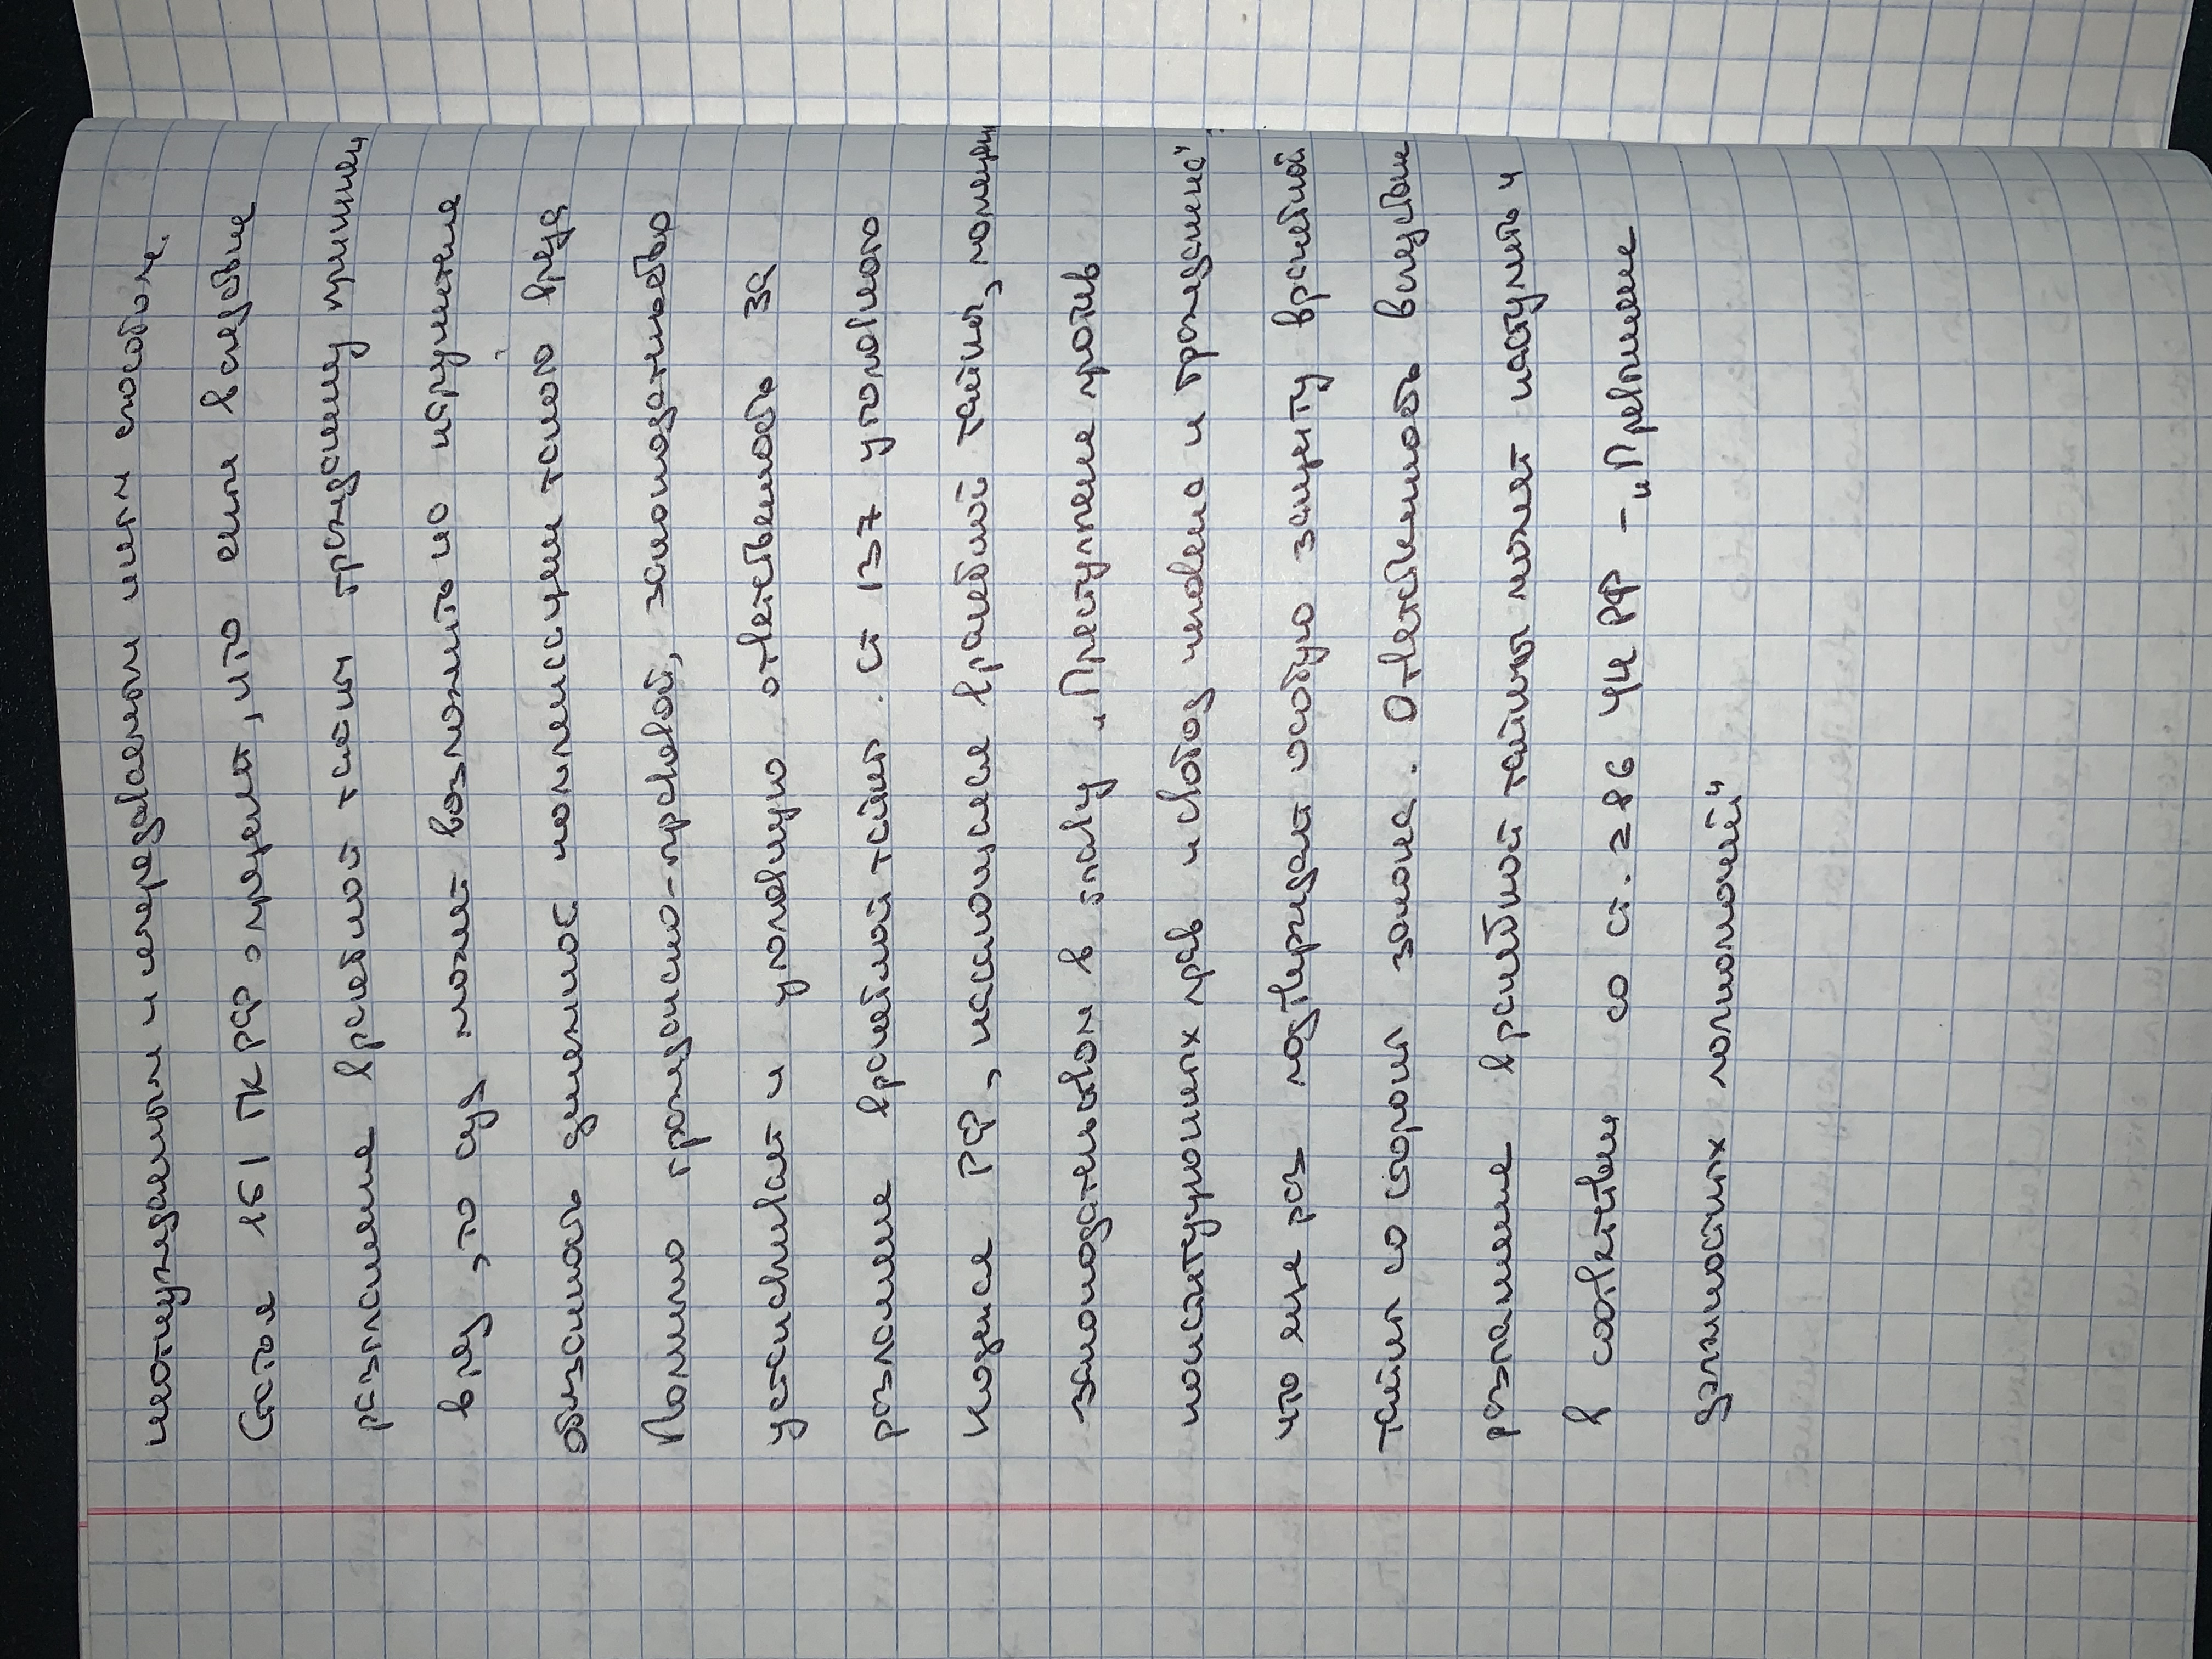 неотчуждаемым и непередаваемым иным способом.
Статья 151 ГК РФ определяет, что если вследствие
разглашение врачебной тайны гражданину причинен
вред, то суд может возложить на нарушителя
обязанность денежной компенсации такого вреда
Помимо гражданско-правовой, законодательство
устанавливает и уголовную ответственность за
разглашение врачебной тайны. Ст 137 уголовного
кодекса РФ, касающаяся врачебной тайны, помещен
законодательством в главу „Преступление против
конституционных прав и свобод человека и гражданина"
что еще раз подтверждает особую защиту врачебной
тайны со стороны закона. Ответственность вследствие
разглашение врачебной тайны может наступить и
в соответствии со ст. 286 УК РФ - „Превышение
должностных полномочий"